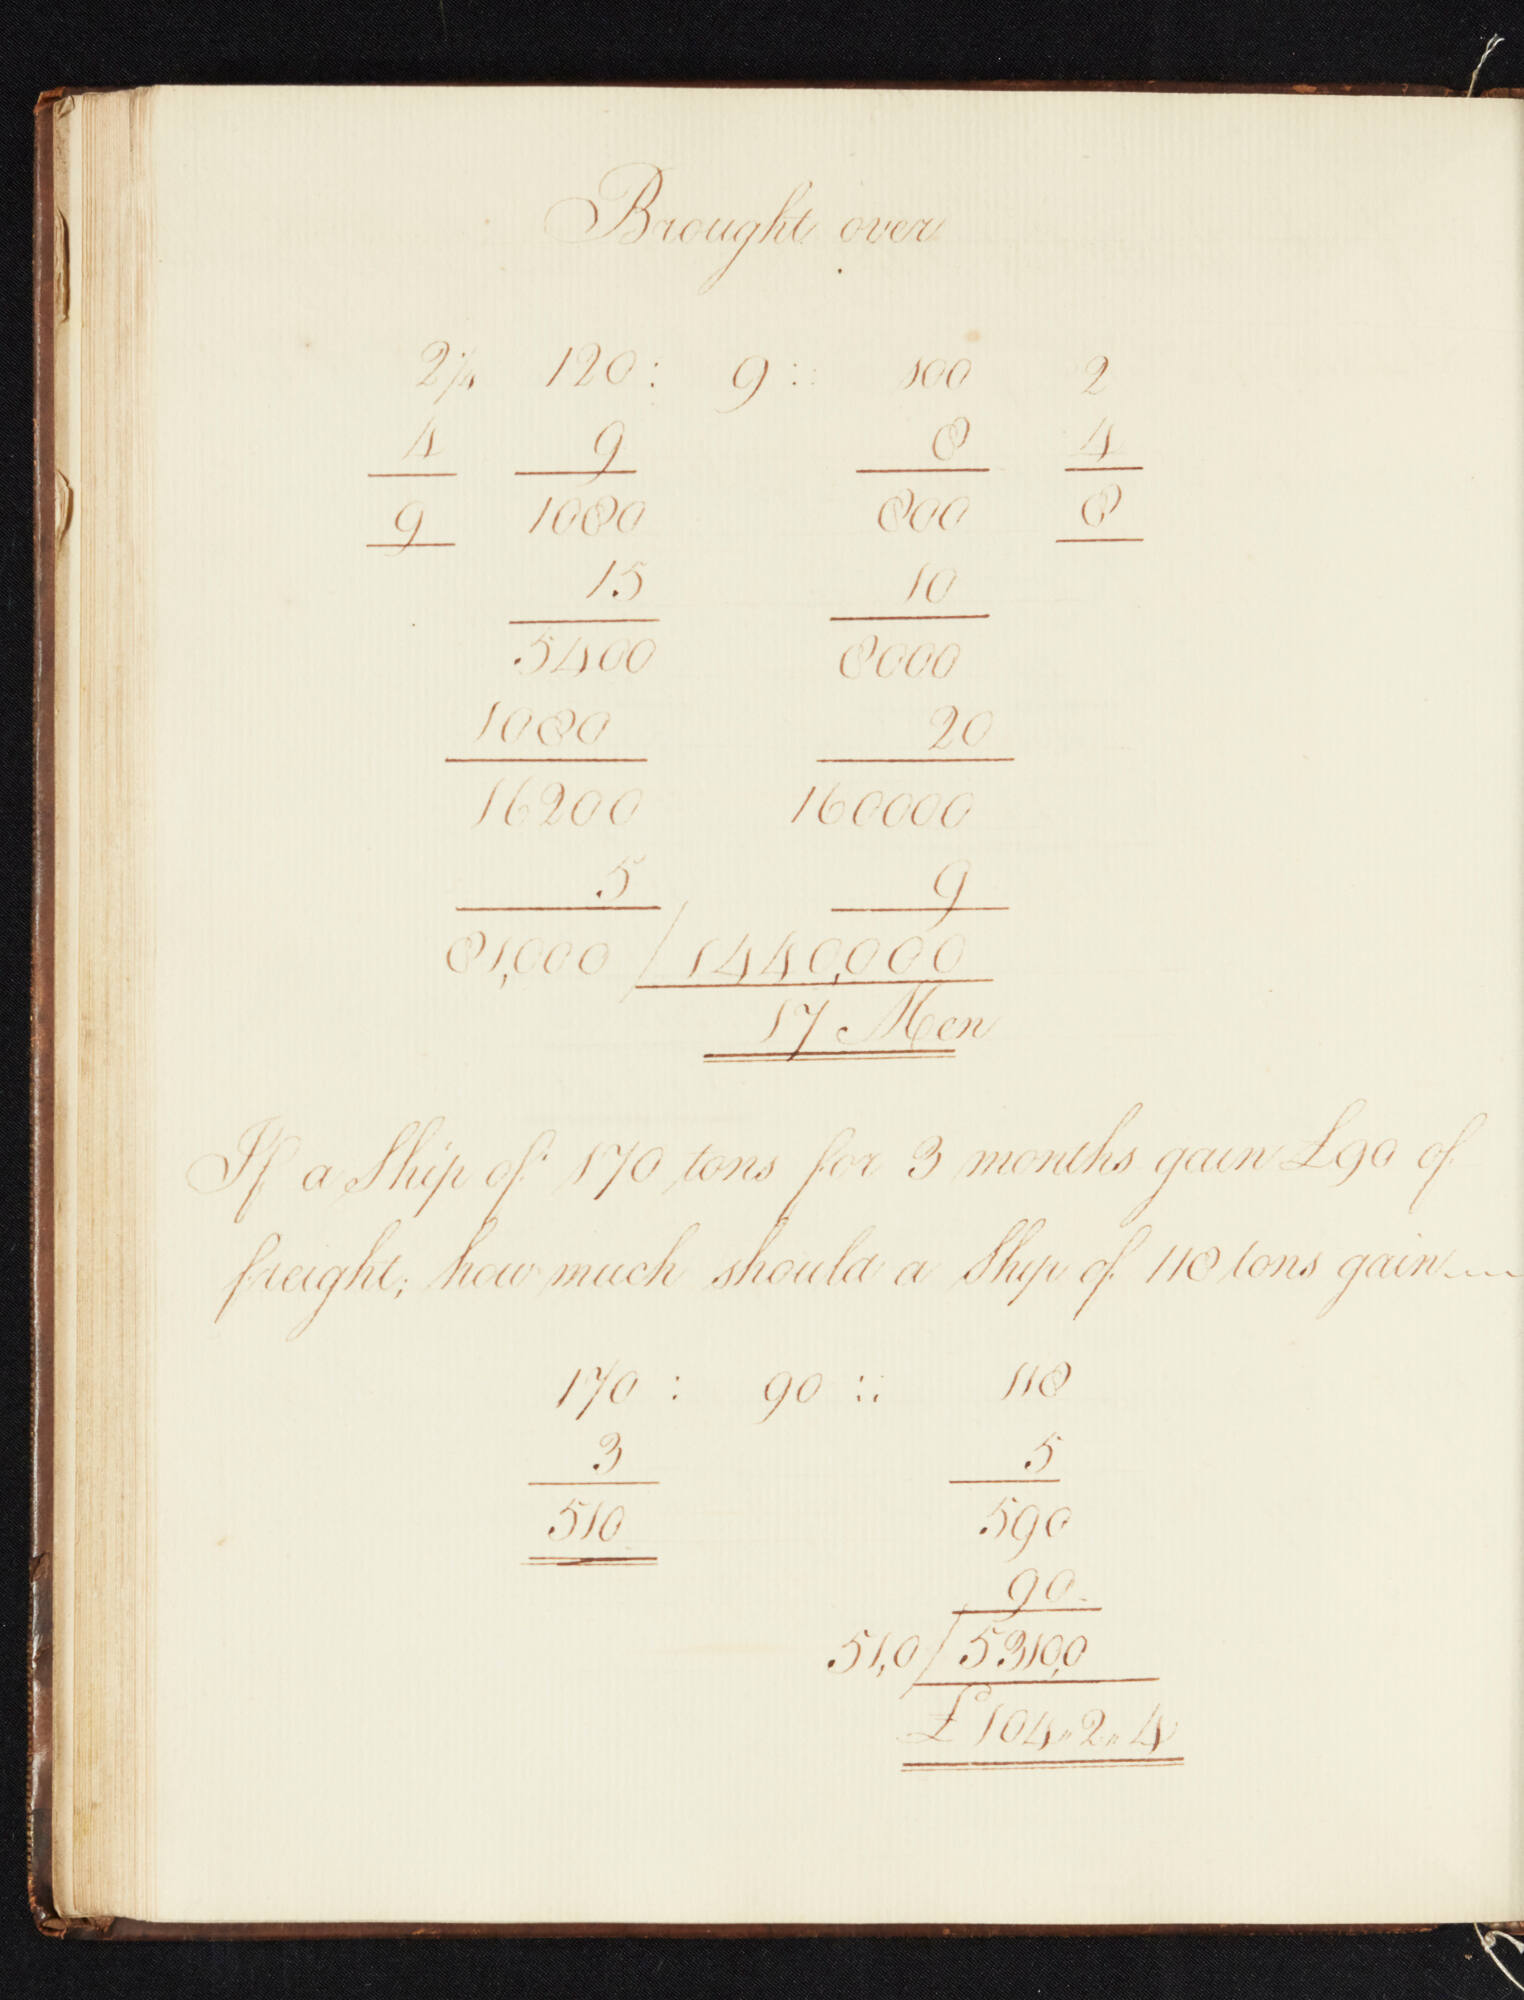 Brought over
2 1/4 120 : 9 :: 100 2
4 9 8 4
9 1080 800 8
15 10
5400 8000
1080 20
16200 160000
5 9
81,000 / 1440,000
17 Men
If a Ship of 170 tons for 3 months gain £90 of
freight; how much should a Ship of 118 tons gain
170 : 90 :: 118
3 5
510 590
90
51,0 / 5310,0
£104 " 2 " 4